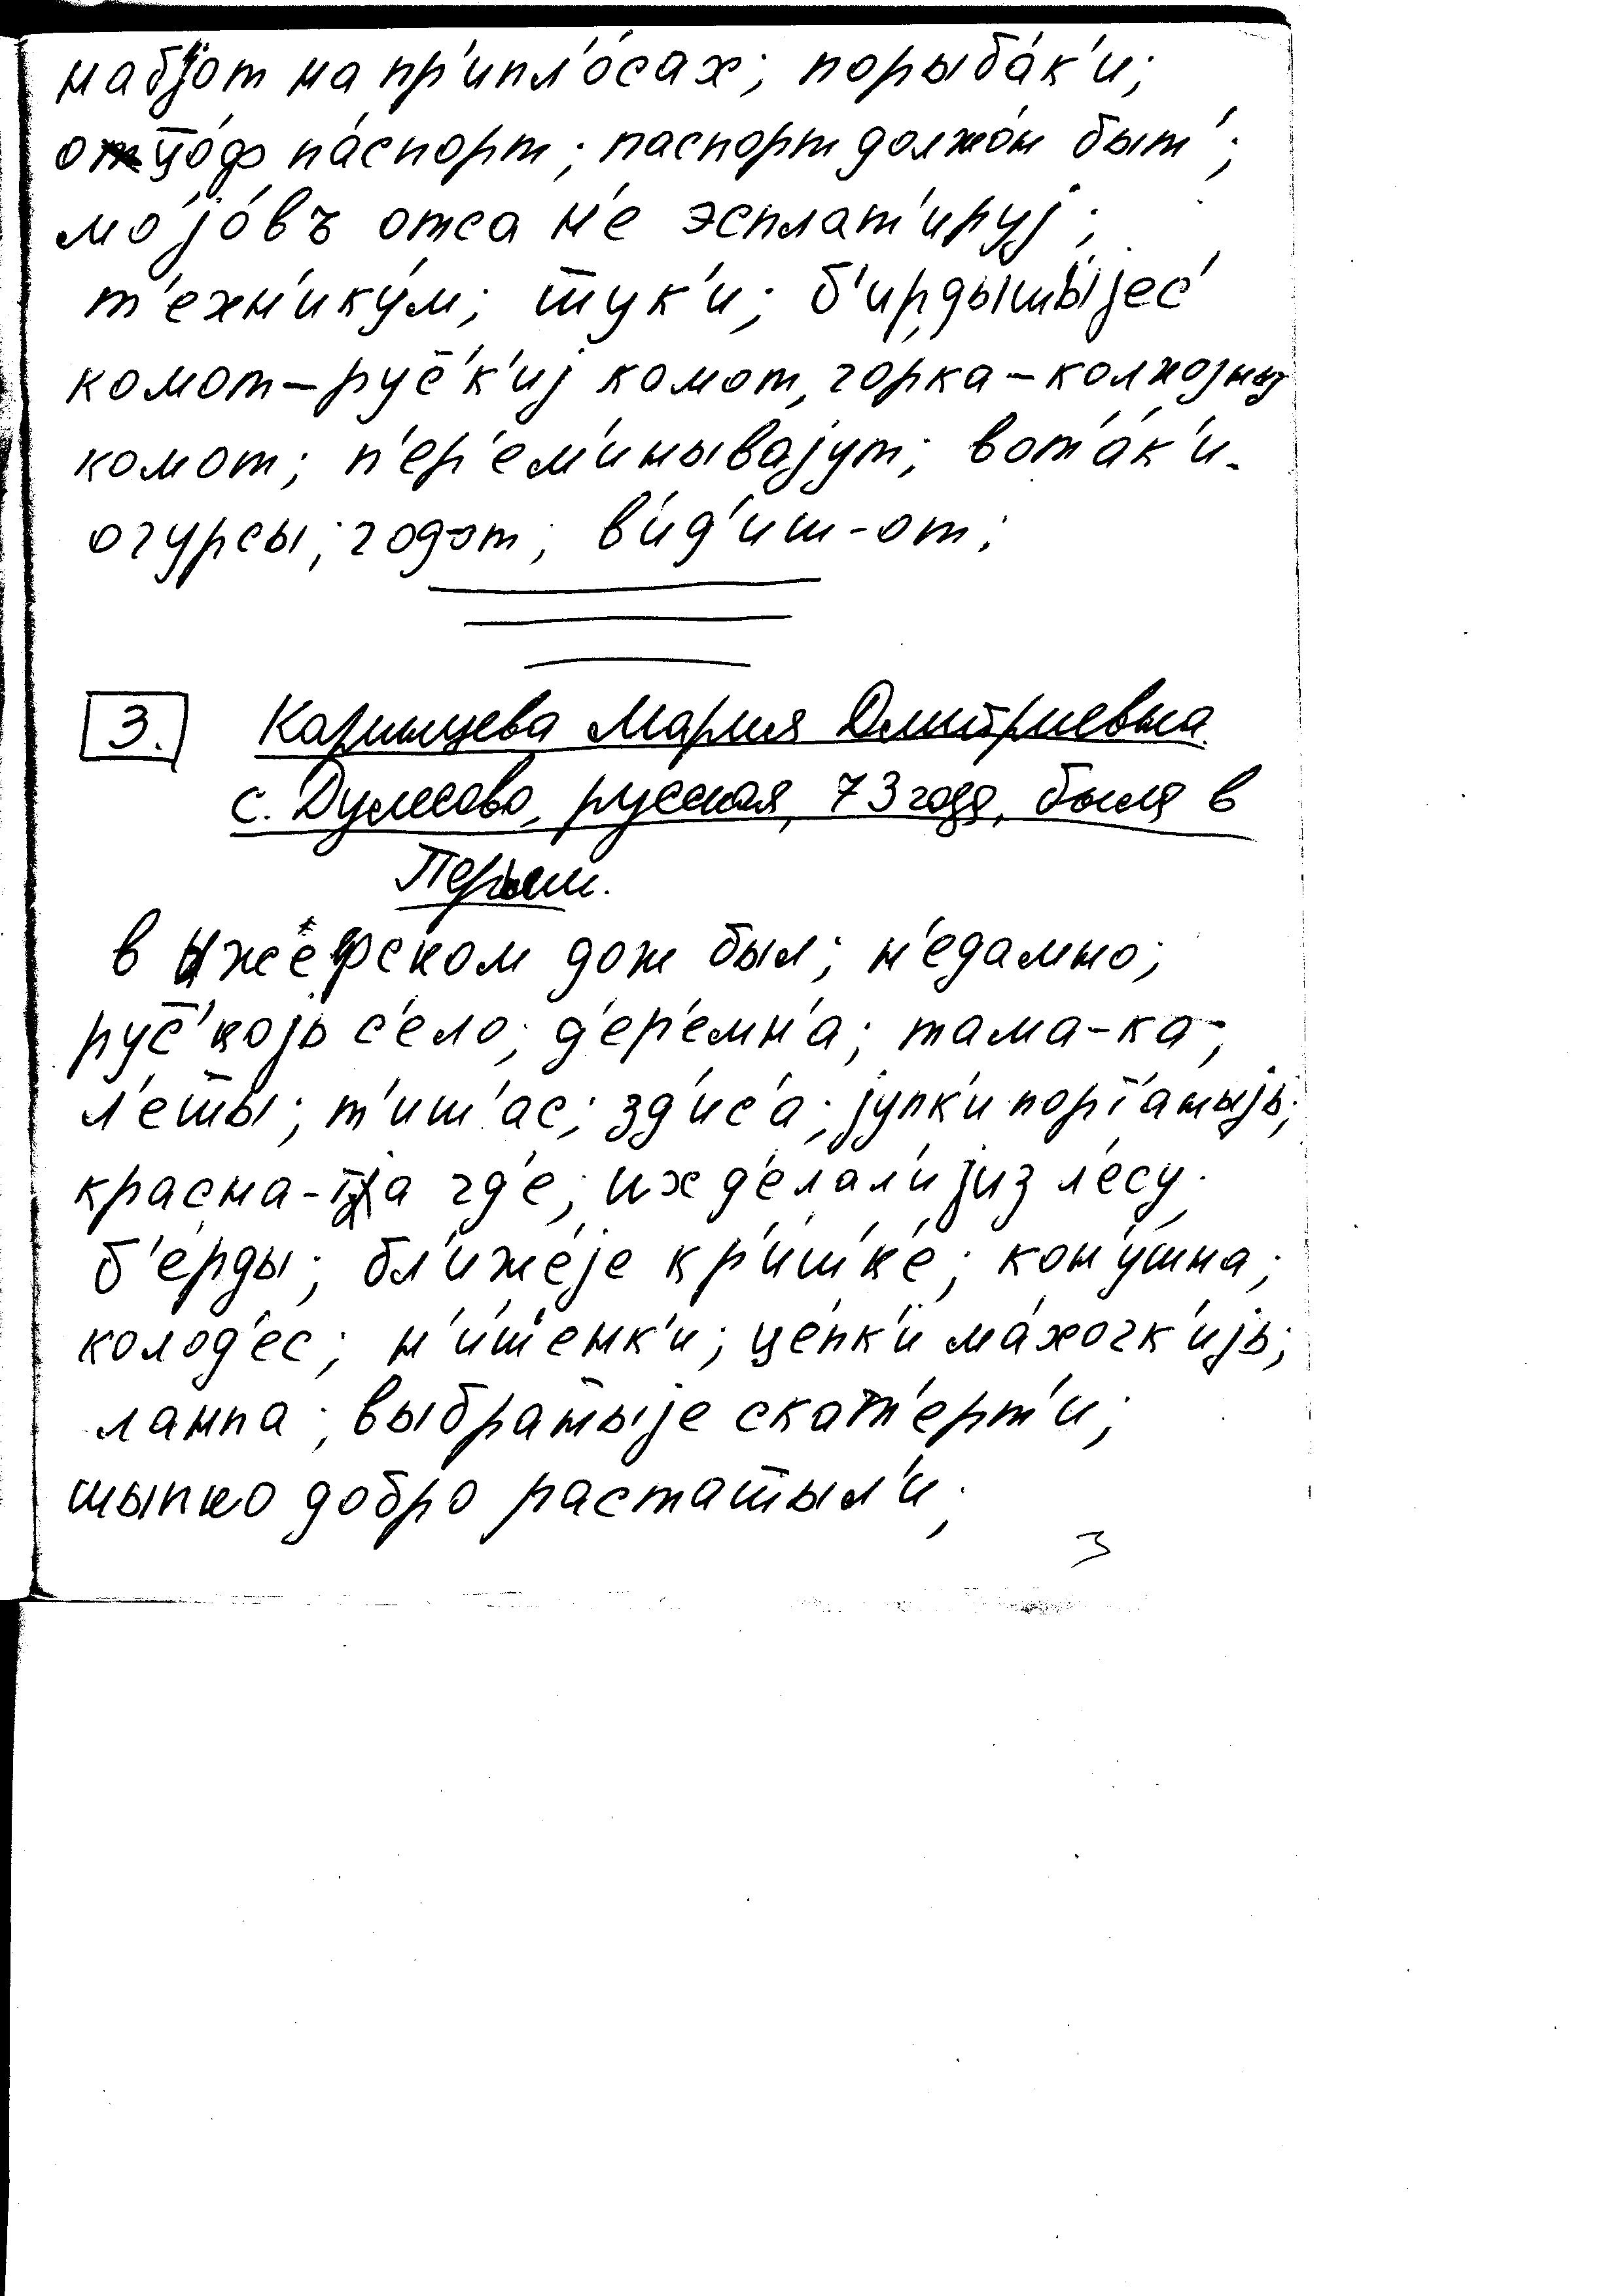 набjот на пр'ипл'о́сах; порыба́к'и;
о т̄о́ф па́спорт; паспорт должо́н быт';
моjо́въ отса н'е эсплат'ируj;
т'ехн'ику́м; т̄ук'и; б'ирдыш́ыjес'
комот – рус̄'к'иj комот, горка – колхозны
комот; п'ер'ем'инываjут; вот'а́к'и.
огурсы; годот; в'ид'иш-от;
3. Каринцева Мария Дмитриевна
с. Дулесово, русская, 73 года, была в
Перми.
в ыже́фском дож был; н'едамно;
рус̄'коjь с'ело; д'ер'емн'а; тама-ка;
л'ет̄ы; т'иш'ас; зд'ис'а; jупк'и порт'аныjь;
красна-та гд'е; их д'елал'и jиз л'есу;
б'ерды; бл'иже́jе к р'ишк'е; кон'у́шна;
колод'ес; н'ит'енк'и; це́пк'и ма́хочк'иjь;
лампа; выбраныjе скат'ерт'и;
шыпко добро растат̄ыл'и;
3